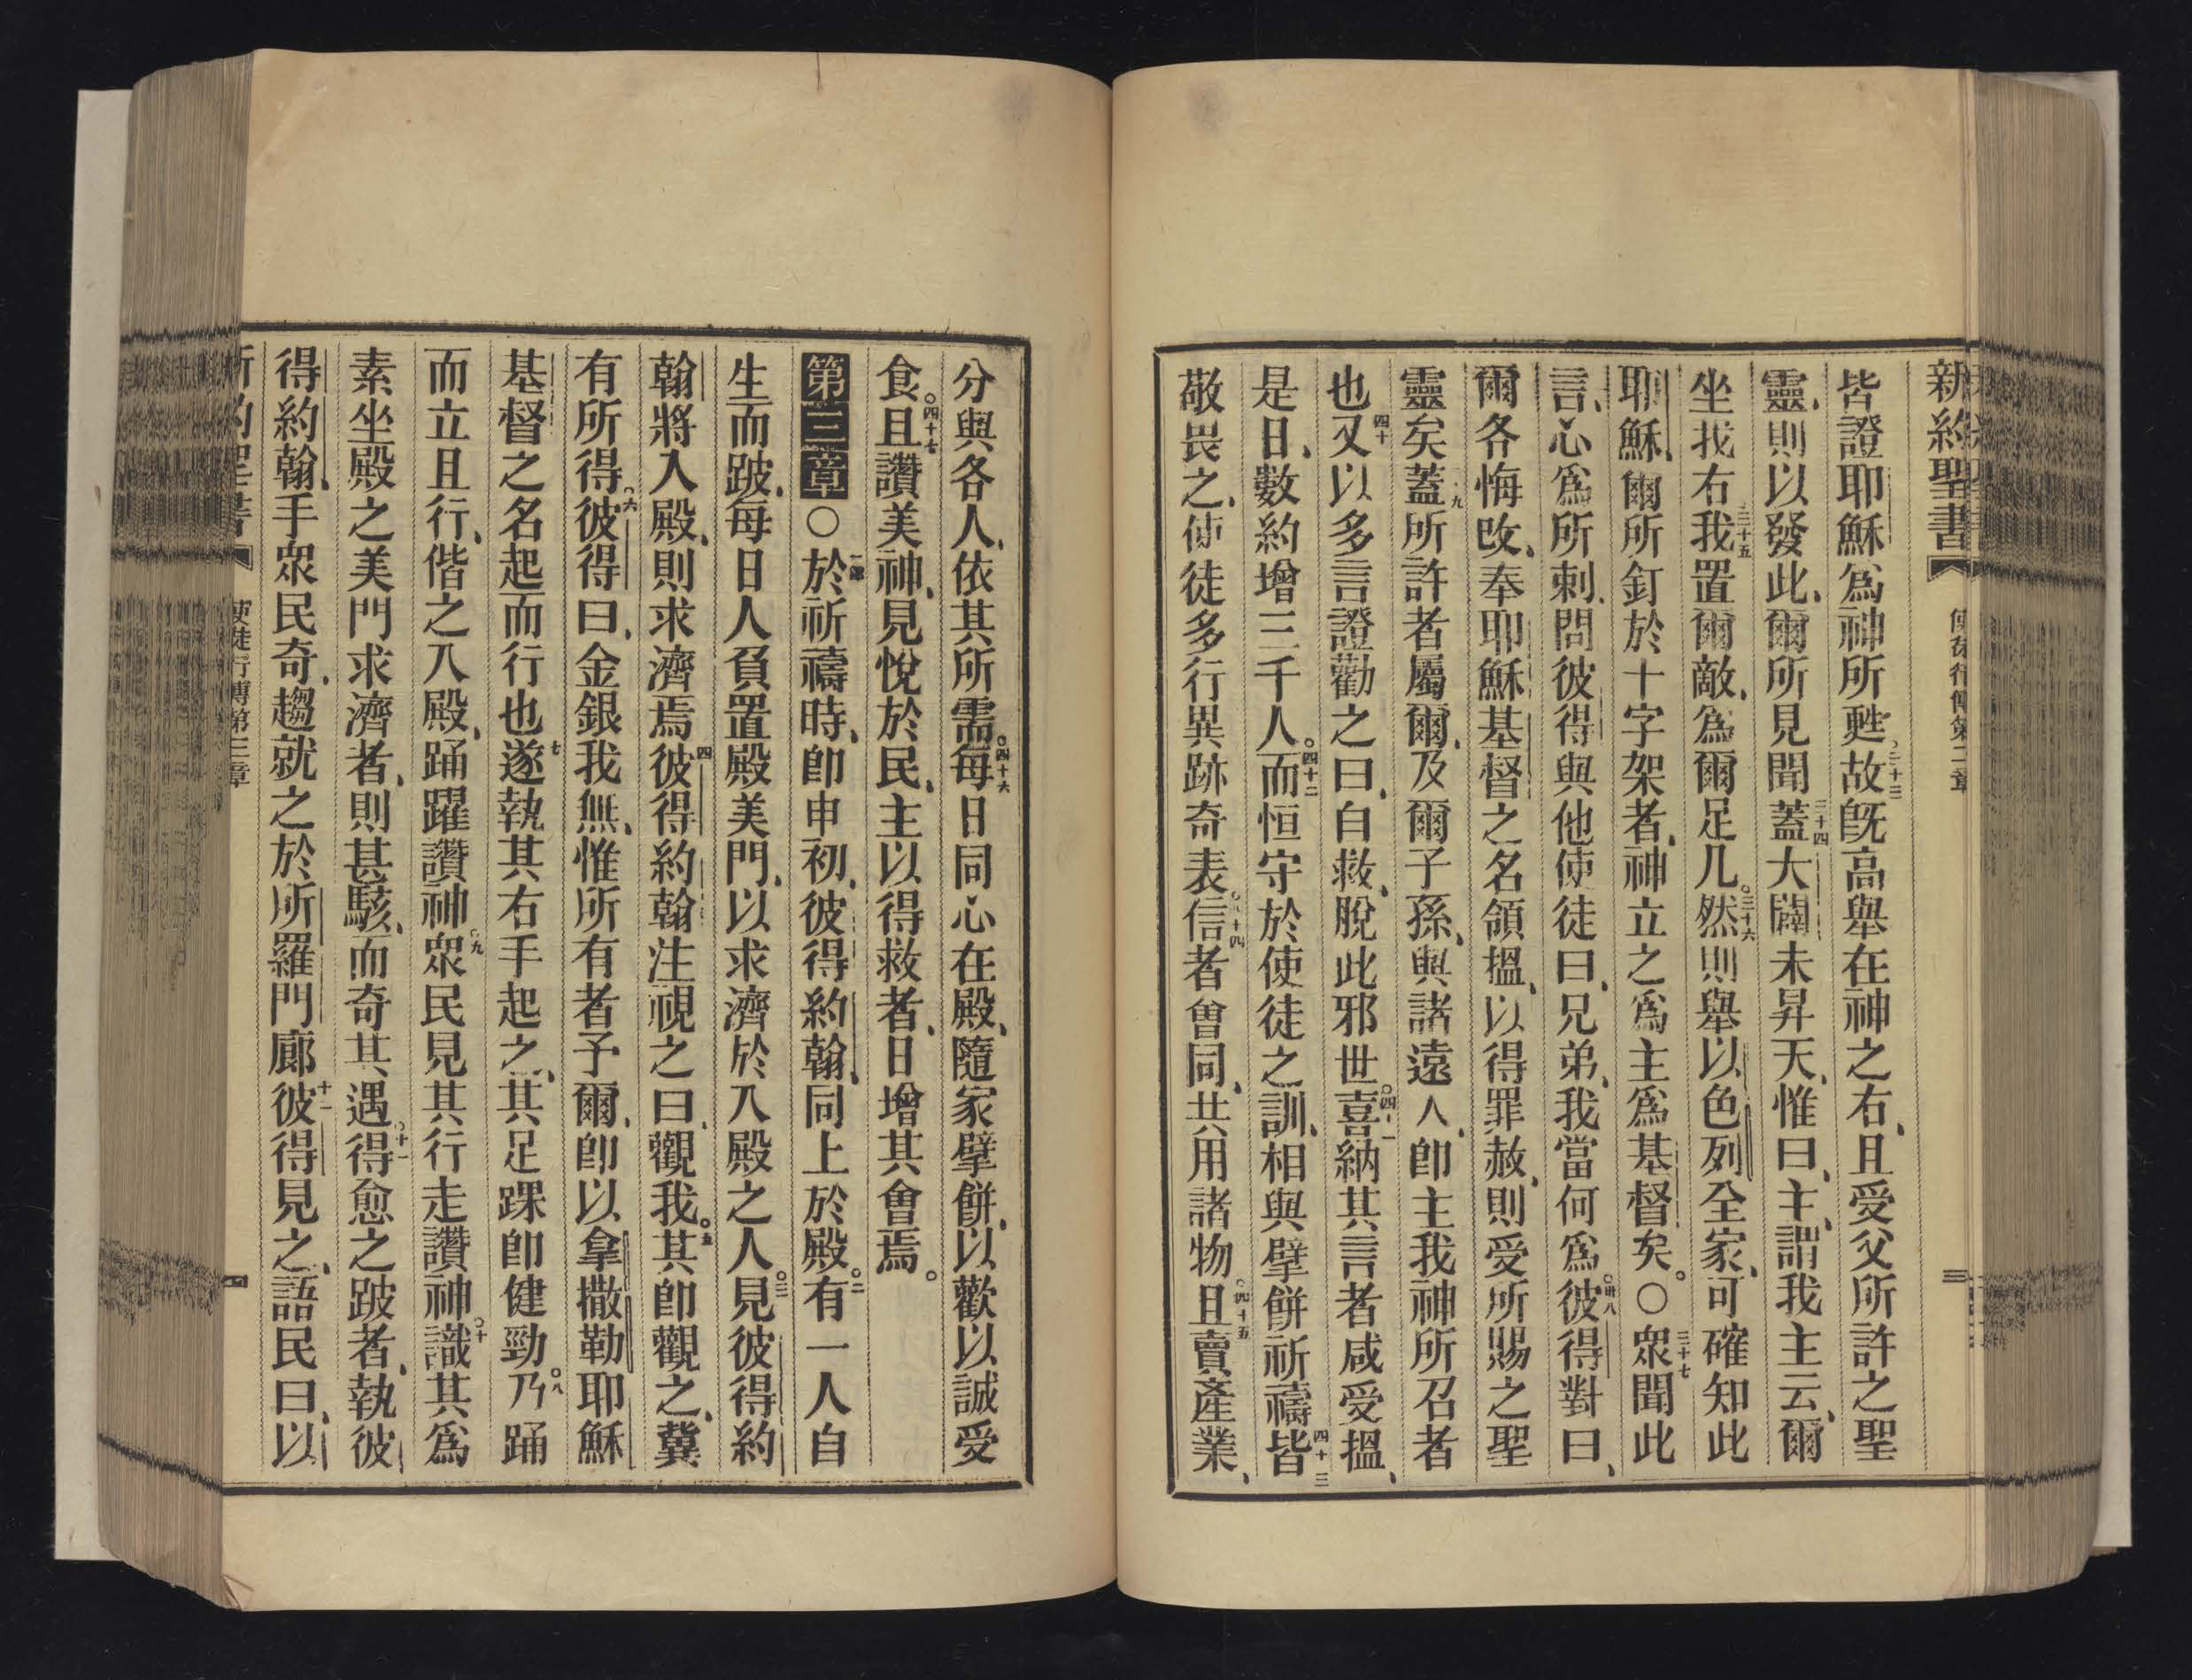 新約聖書 使徒行傳第二章 三
皆證耶穌爲神所甦。三十三故旣高舉在神之右、且受父所許之聖
靈、則以發此、爾所見聞三十四蓋大闢未昇天、惟曰、主、謂我主云、爾
坐我右三十五我置爾敵、爲爾足几。三十六然則舉以色列全家、可確知此
耶穌、爾所釘於十字架者、神立之爲主爲基督矣。〇三十七衆聞此
言、心爲所刺、問彼得與他使徒曰、兄弟、我當何爲。卅八彼得對曰、
爾各悔改、奉耶穌基督之名領搵、以得罪赦、則受所賜之聖
靈矣九蓋所許者屬爾、及爾子孫、與諸遠人、卽主我神所召者
也四十又以多言證勸之曰、自救、脫此邪世。四十一喜納其言者咸受搵、
是日、數約增三千人。四十二而恒守於使徒之訓、相與擘餅祈禱四十三皆
敬畏之、使徒多行異跡奇表。四十四信者會同、共用諸物。四十五且賣產業、
分與各人、依其所需。四十六每日同心在殿、隨家擘餅、以歡以誠受
食。四十七且讚美神、見悅於民、主以得救者、日增其會焉。
第三章〇一節於祈禱時、卽申初、彼得約翰、同上於殿。二有一人自
生而跛、每日人負置殿美門、以求濟於入殿之人。三見彼得約
翰將入殿、則求濟焉四彼得約翰注視之曰、觀我。五其卽觀之、冀
有所得。六彼得曰、金銀我無、惟所有者予爾、卽以拿撒勒耶穌
基督之名起而行也七遂執其右手起之、其足踝卽健勁。八乃踊
而立且行、偕之入殿、踊躍讚神。九衆民見其行走讚神。十識其爲
素坐殿之美門求濟者、則甚駭、而奇其遇。十一得愈之跛者、執彼
得約翰、手衆民奇、趨就之於所羅門廊十二彼得見之、語民曰、以
新約聖書 使徒行傳第三章 四